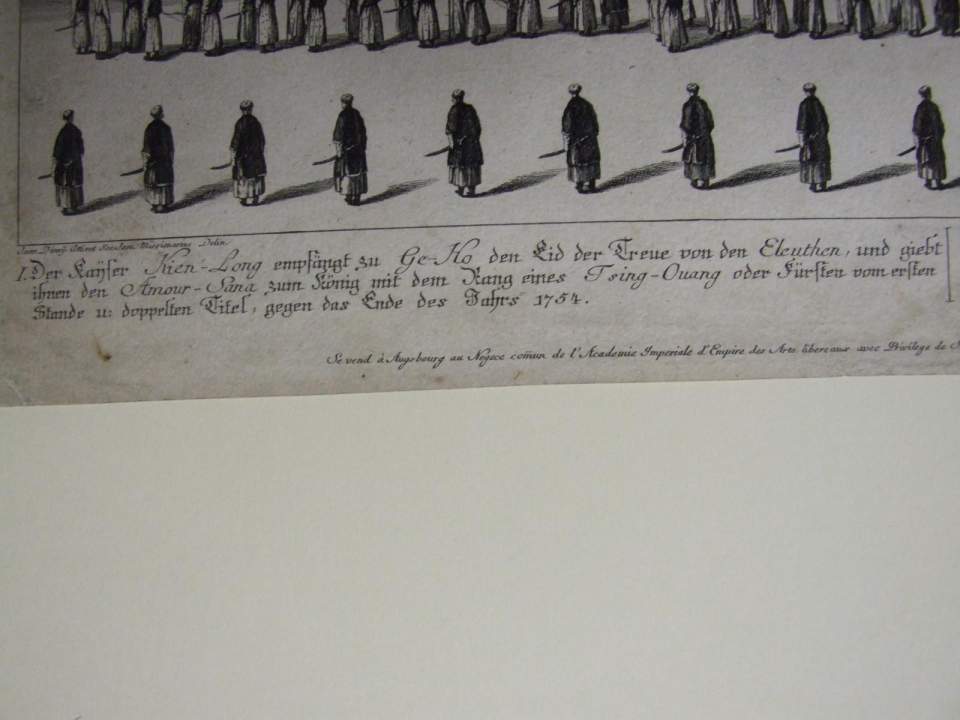 Jean Denis Attiret Soc. Jesu Missionarius Delin.
I. Der Kaÿser Kien-Long empfängt zu Ge-Ho den Eid der Treue von den Eleuthen, und giebt
ihnen den Amour-Sana zum König mit dem Rang eines Tsing-Ouang oder Fürsten vom ersten
Stande u: doppelten Titel, gegen das Ende des Jahrs 1754.
Se vend à Augsbourg au Negoce comun de l'Academie Imperiale d'Empire des Arts libereaux avec Privilege de S